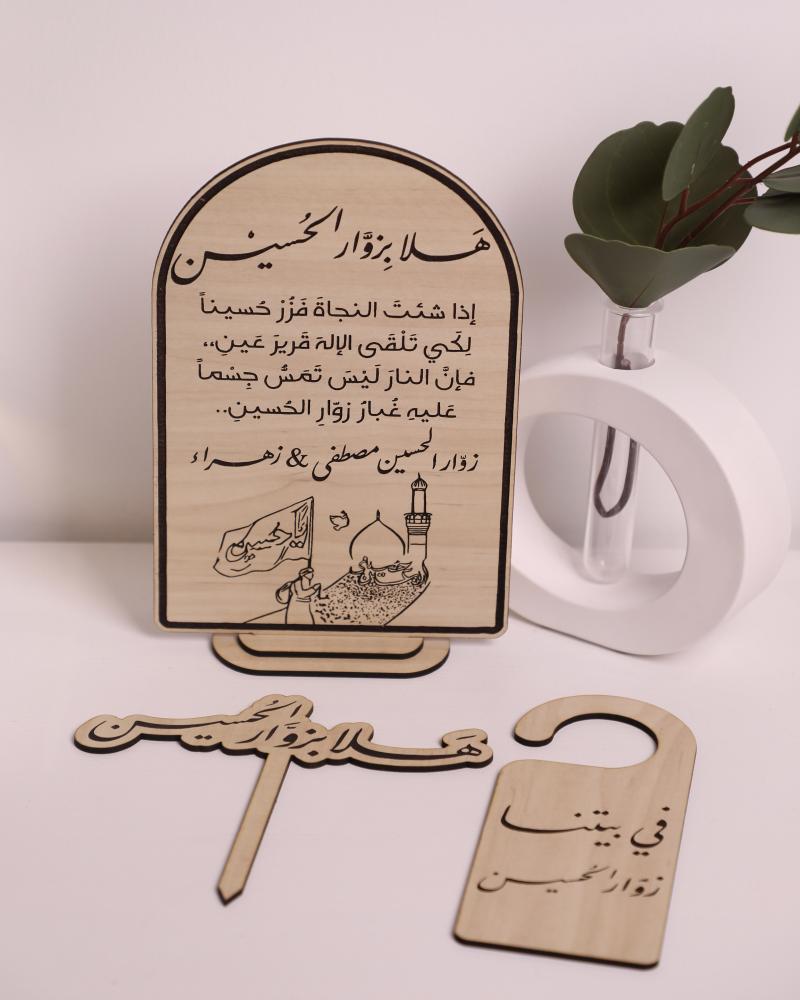 هَلا بِزوَّار الحُسيْن
إذا شئتَ النجاةَ فَزُرْ حُسيناً
لِكَي تَلْقَى الإلهَ قَريرَ عَينِ،،
فإنَّ النارَ لَيْسَ تَمَسُّ جِسْماً
عَليهِ غُبارُ زوّارِ الحُسينِ..
زوّار الحسين مصطفى & زهراء
يا حسين
هَلا بزوَّار الحُسين
في بيتنا
زوَّار الحُسين